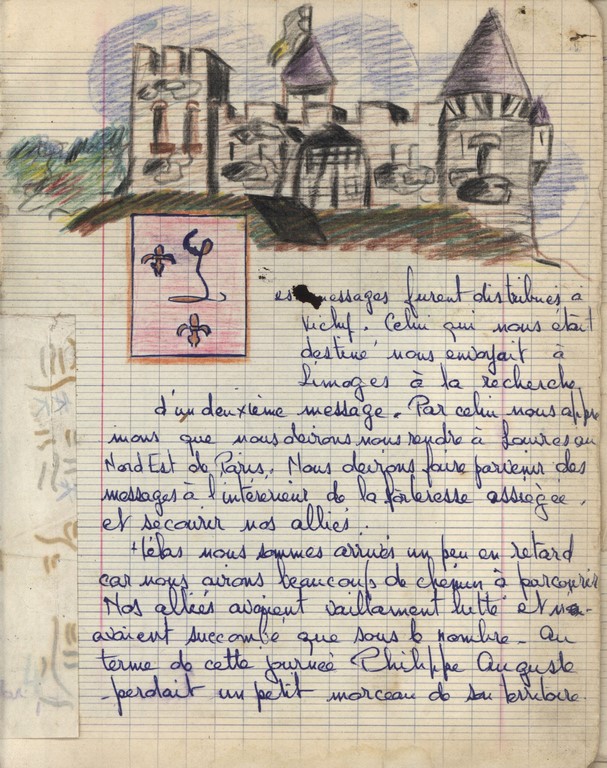 L
es messages furent distribués à
Vichy. Celui qui nous était
destiné nous envoyait à
Limoges à la recherche
d'un deuxième message. Par celui nous appre
nions que nous devions nous rendre à Louvres au
Nord Est de Paris. Nous devions faire parvenir des
messages à l'intérieur de la forteresse assiégée,
et secourir nos alliés.
Hélas nous sommes arrivés un peu en retard
car nous avions beaucoup de chemin à parcourir
Nos alliés avaient vaillament lutté et n'a-
vaient succombé que sous le nombre. Au
terme de cette journée Philippe Auguste
perdait un petit morceau de son territoire.